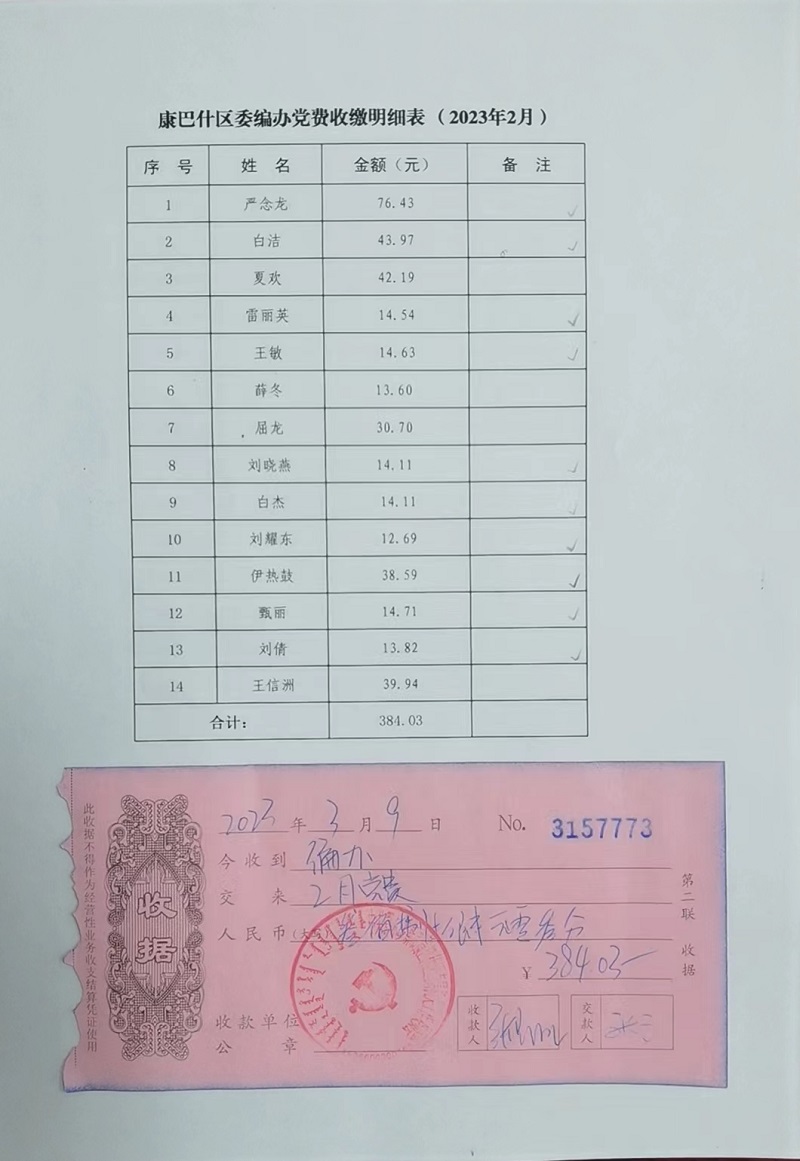 康巴什区委编办党费收缴明细表（2023年2月）
序 号 姓 名 金额（元） 备 注
1 严念龙 76.43
2 白洁 43.97
3 夏欢 42.19
4 雷丽英 14.54
5 王敏 14.63
6 薛冬 13.60
7 屈龙 30.70
8 刘晓燕 14.11
9 白杰 14.11
10 刘耀东 12.69
11 伊热鼓 38.59
12 甄丽 14.71
13 刘倩 13.82
14 王信洲 39.94
合计： 384.03
此收据不得作为经营性业务收支结算凭证使用
收据
2023 年 3 月 9 日 No. 3157773
今收到 编办
交 来 2月党费
人民币(大写) 叁佰捌拾肆元零叁分
¥ 384.03
收款单位
公 章
收款人
交款人
第二联 收据